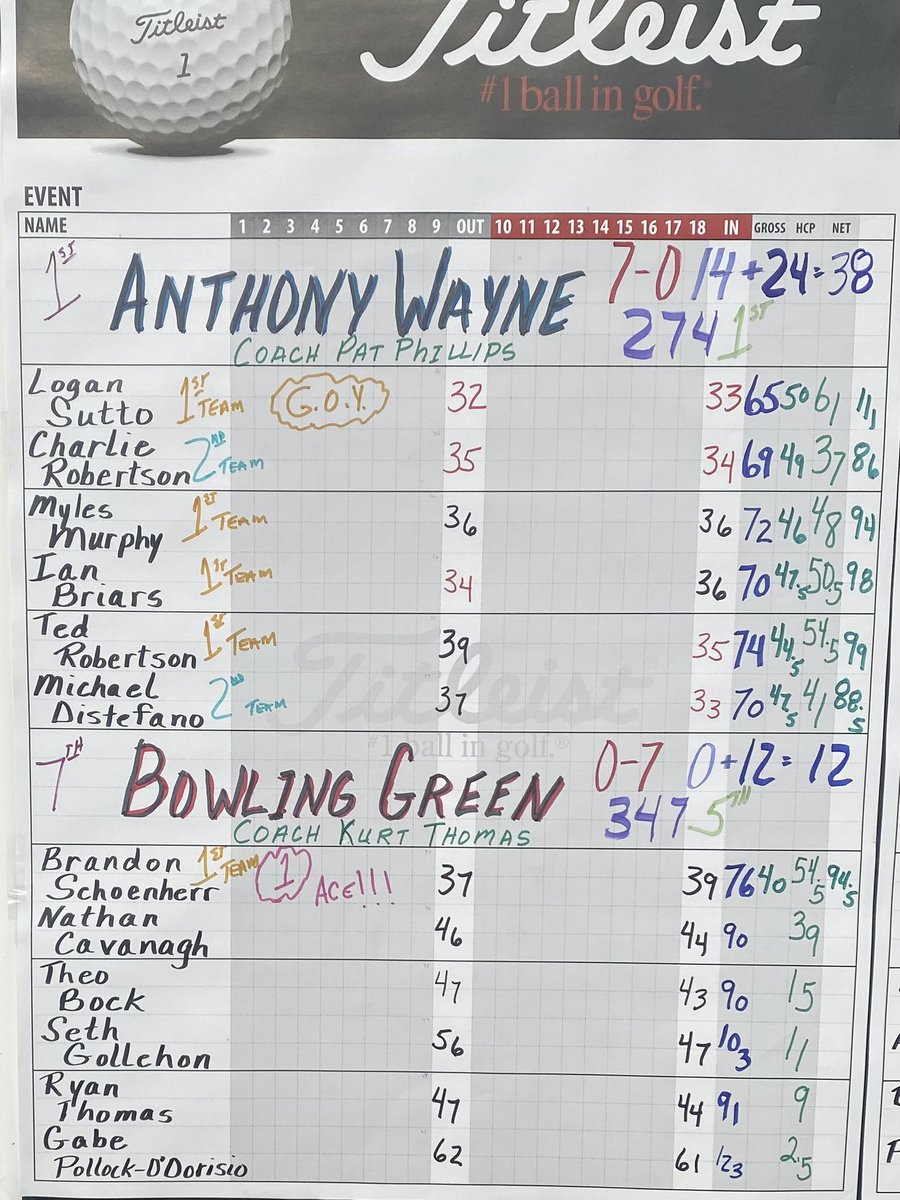 Titleist
1
Titleist
#1 ball in golf.®
EVENT
NAME 1 2 3 4 5 6 7 8 9 OUT 10 11 12 13 14 15 16 17 18 IN GROSS HCP NET
1ST ANTHONY WAYNE 7-0 14+24=38
274 1ST
COACH PAT PHILLIPS
Logan Sutto 1ST TEAM G.O.Y. 32 33 65 50 61 111
Charlie Robertson 2ND TEAM 35 34 69 49 37 86
Myles Murphy 1ST TEAM 36 36 72 46 48 94
Ian Briars 1ST TEAM 34 36 70 47.5 50.5 98
Ted Robertson 1ST TEAM 39 35 74 44.5 54.5 99
Michael Distefano 2ND TEAM 37 33 70 47.5 41 88.5
Titleist
#1 ball in golf.®
7TH BOWLING GREEN 0-7 0+12=12
347 5TH
COACH KURT THOMAS
Brandon Schoenherr 1ST TEAM 1 ACE!!! 37 39 76 40 54.5 94.5
Nathan Cavanagh 46 44 90 39
Theo Bock 47 43 90 15
Seth Gollehon 56 47 103 11
Ryan Thomas 47 44 91 9
Gabe Pollock-D'Dorisio 62 61 123 2.5